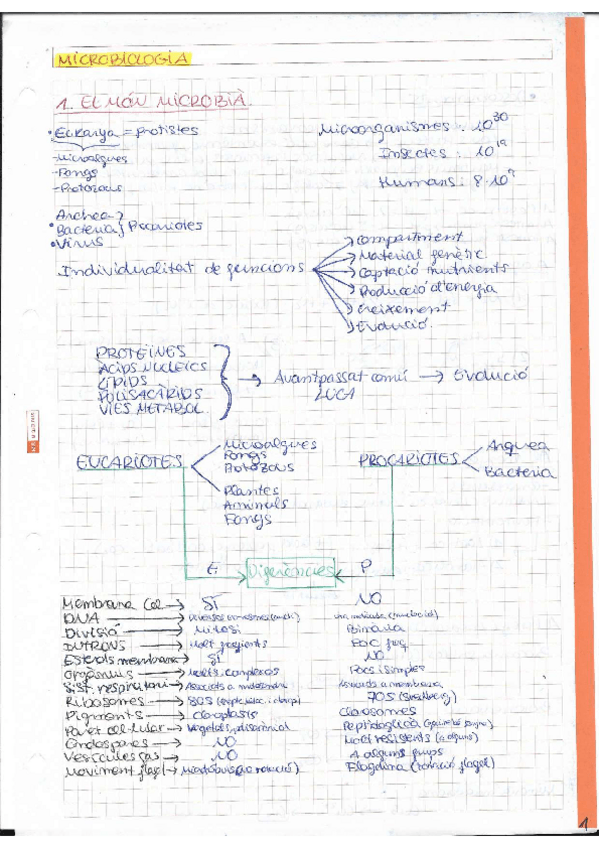 MICROBIOLOGIA
1. EL MÓN MICROBIÀ.
• Eukarya = protistes
- Microalgues
- Fongs
- Protozous
Microorganismes : 10³⁰
Insectes : 10¹⁹
Humans : 8·10⁹
Archea
• Bacteria } Procariotes
• Virus
Individualitat de funcions
Compartiment
Material genètic
Captació nutrients
Producció d'energia
Creixement
Evolució.
PROTEÏNES
ÀCIDS NUCLEICS
LÍPIDS
POLISACÀRIDS
VIES METABOL.
→ Avantpassat comú → Evolució
LUCA
EUCARIOTES
Microalgues
Fongs
Protozous
Plantes
Animals
Fongs
PROCARIOTES
Arquea
Bacteria
E. Diferències P
Membrana Cel → SÍ NO
DNA →
Divisió → Mitosi Binària
INTRONS → Molt freqüents Poc freq
Esterols membrana → SÍ NO
Orgànuls → Molts, complexos Pocs i simples
Sist. respiratori → Associats a Associats a membrana
Ribosomes → 80S 70S (Svedberg)
Pigments → Cloroplasts Clorosomes
Paret cel·lular → Vegetals, Peptidoglicà
Endospores → NO Molt resistents (a alguns)
Vesícules gas → NO A alguns grups
Moviment flagel → Flagelina (rotació flagel)
1